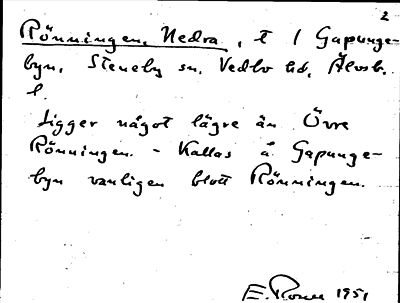 2
Rönningen, Nedra, t 1 Gapunge-
byn, Steneby sn, Vedbo hd, Älvsb.
l.
Ligger något lägre än Övre
Rönningen. - Kallas å Gapunge-
byn vanligen blott Rönningen.
E. 1951